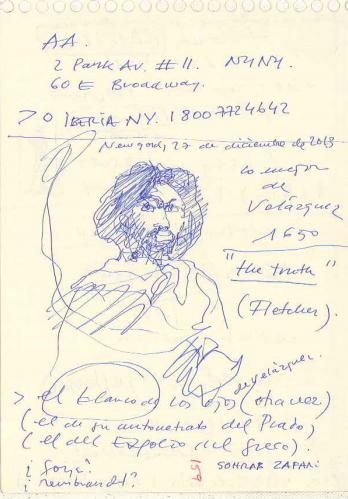 AA.
2 Park Av. # 11. NYNY.
60 E Broadway.
> O IBERIA NY. 1 800 7724642
27 de diciembre de 2013
lo mejor
de
Velázquez
1650
"the truth"
(Fletcher).
de Velázquez.
> el blanco de los ojos (Chavez)
(el de su autorretrato del Prado,
(el del Expolio del Greco).
¿Goya?
¿rembrandt?
159
SOHRAB ZAFARI